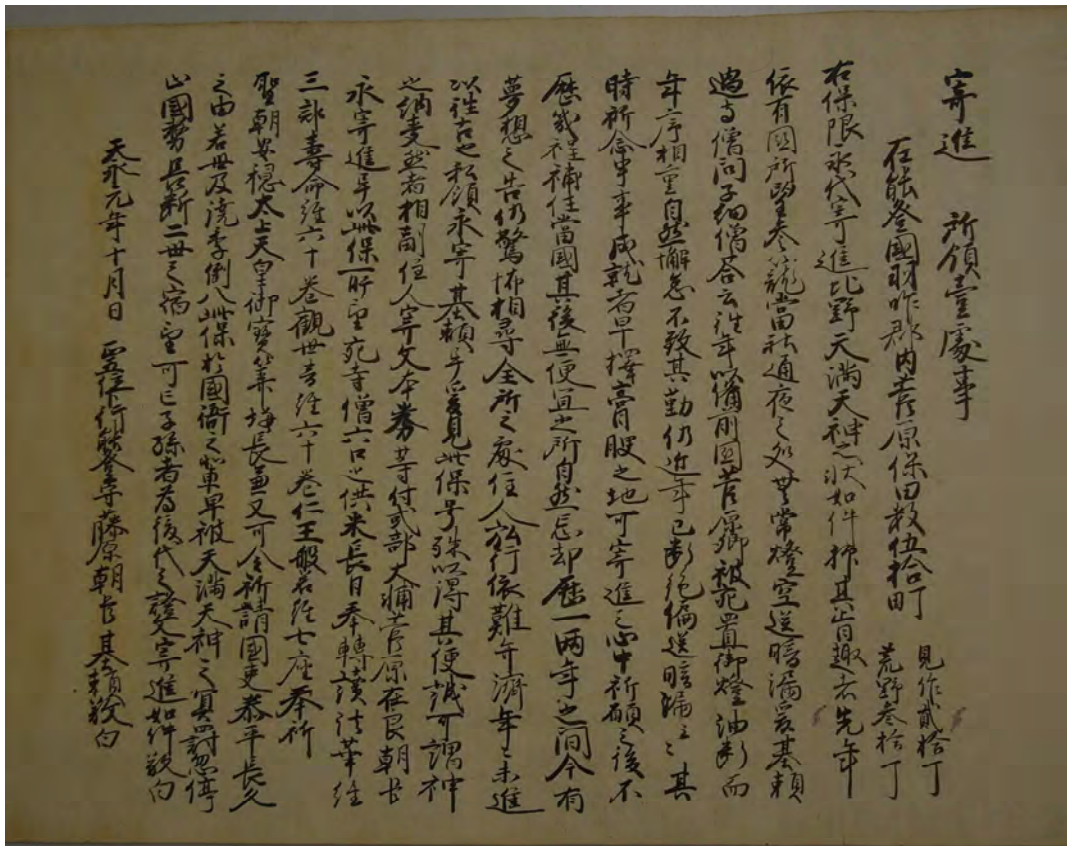 寄進　所領壹處事
在能登國羽咋郡内菅原保田数伍拾町　見作貳拾丁
荒野叁拾丁
右保限永代寄進北野天満天神之状如件抑其旨趣者先年
依有國所望参籠當社通夜之処无常燈空送暗漏爰基頼
遇寺僧問子細僧答云往年以備前國菅原郷被宛置御燈油断而
年序相重自然懈怠不致其勤仍近年已断絶偏送暗漏云々其
時祈念申事成就者早擇膏腴之地可寄進之心中祈願之後不
歴幾程補任當國其後無便宜之所自然忘却歴一両年之間今有
夢想之告仍驚怖相尋全所之處住人弘行依難弁濟年々未進
以往古之私領永寄基頼乎爰見此保号殊以得其便誠可謂神
之納受然者相副住人寄文本券等付式部大輔菅原在良朝臣
永寄進早以此保一所宛寺僧六口之供米長日奉轉讀法華經
三部壽命經六十巻観世音經六十巻仁王般若經七座奉祈
聖朝安穏太上天皇御寳算増長兼又可令祈請國吏恭平長久
之由若世及澆季倒八此保於國衙之輩早被天満天神之冥罰忽停
止國務且断二世之所望可亡子孫者為後代之證文寄進如件敬白
天永元年十月日　　正五位下行能登守藤原朝臣基頼敬白